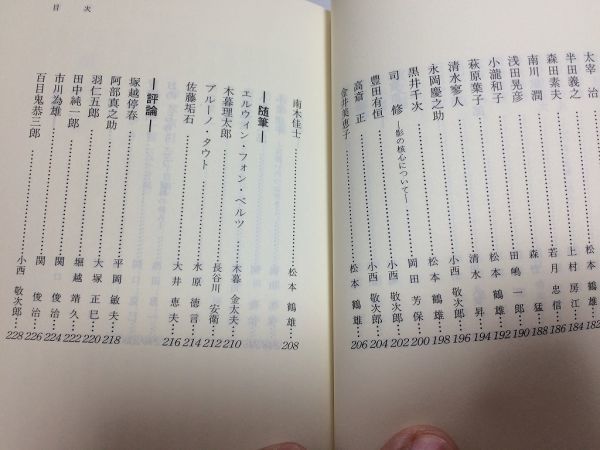 太宰 治……松本 鶴雄……182
半田義之……上村 房江……184
森田素夫……若月 忠信……186
南川 潤……森 猛……188
浅田晃彦……田嶋 一郎……190
小瀧和子……松本 鶴雄……192
萩原葉子……清水 昇……194
清水寥人……小西 敬次郎……196
永岡慶之助……松本 鶴雄……198
黒井千次……岡田 芳保……200
司 修 ―影の核心について―……小西 敬次郎……202
豊田有恒
高斎 正……小西 敬次郎……204
金井美恵子……松本 鶴雄……206
目 次
南木佳士……松本 鶴雄……208
―随筆―
エルウィン・フォン・ベルツ……木暮 金太夫……210
木暮理太郎……長谷川 安衛……212
ブルーノ・タウト……水原 徳言……214
佐藤垢石……大井 恵夫……216
―評論―
塚越停春……平岡 敏夫……218
阿部真之助……大塚 正巳……220
羽仁五郎……堀越 靖久……222
田中純一郎……関 俊治……224
市川為雄……関 俊治……226
百目鬼恭三郎……小西 敬次郎……228